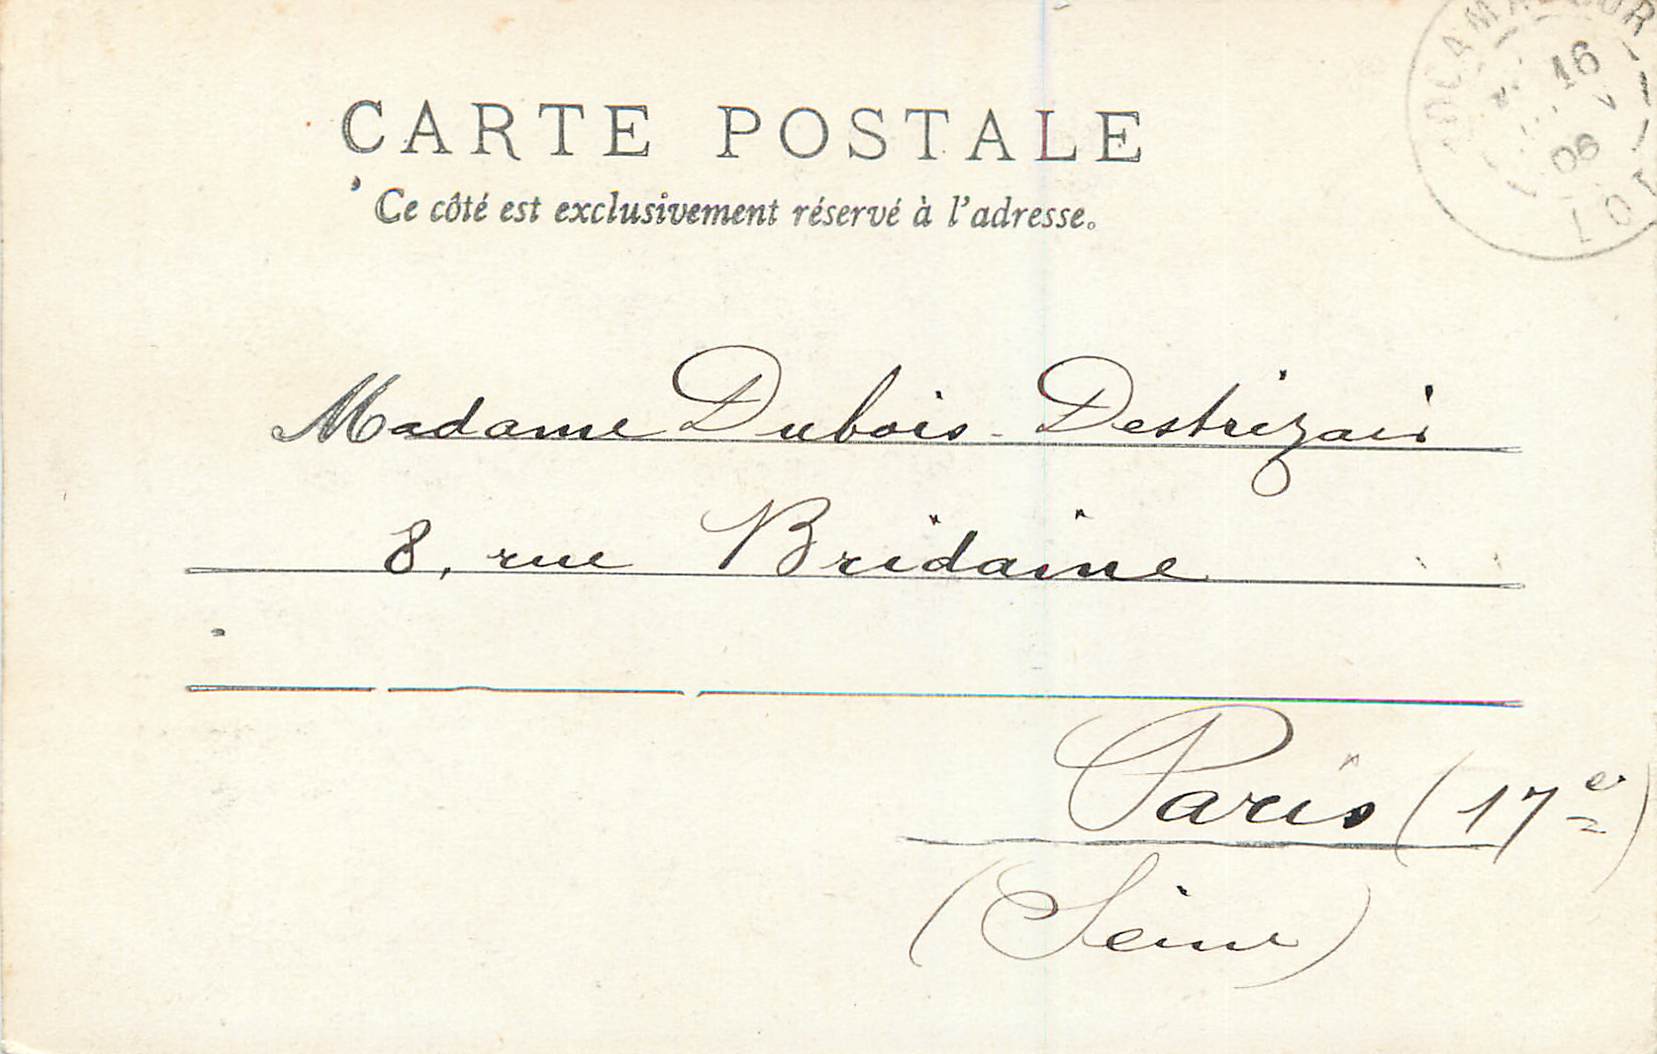 CARTE POSTALE
Ce côté est exclusivement réservé à l'adresse.
ROCAMADOUR
16
06
LOT
Madame Dubois-Destrizais
8, rue Bridaine
Paris (17e)
(Seine)